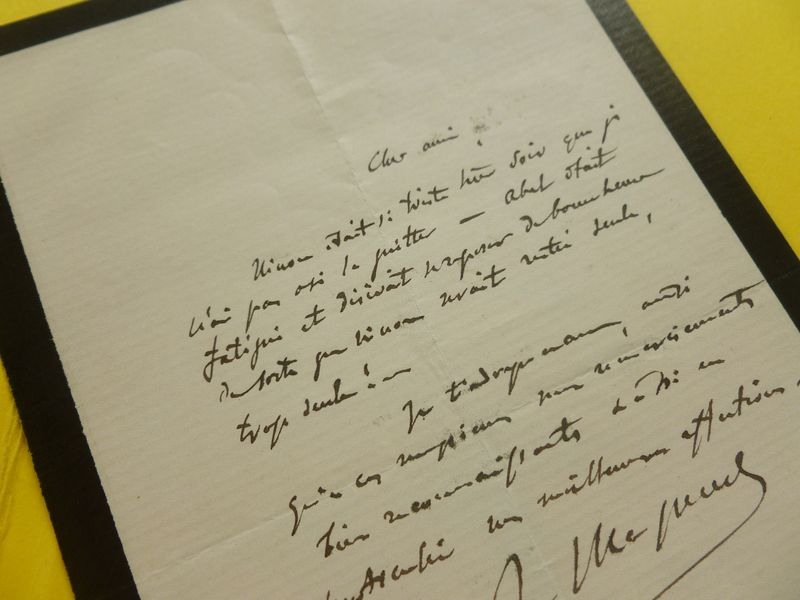 Cher ami,
Ninon était si triste hier soir que je
n'ai pas osé la quitter — Abel était
fatigué et désirait se reposer de bonne heure
de sorte que Ninon serait restée seule,
trop seule!
Je t'adresse aussi
qu'à ces messieurs mes remerciements
bien reconnaissants
mes meilleures affections